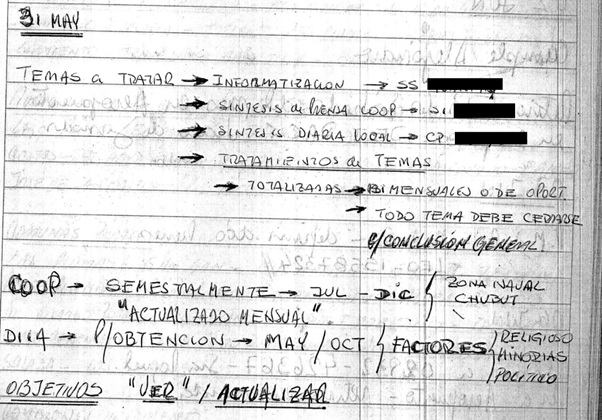 31 MAY
TEMAS a TRATAR → INFORMATIZACION → SS
→ SINTESIS de PRENSA COOP →
→ SINTESIS DIARIA LOCAL → CP
→ TRATAMIENTOS de TEMAS
→ TOTALIZADAS → BIMENSUALES O DE OPORT.
→ TODO TEMA DEBE CERRARSE
C/CONCLUSIÓN GENERAL
COOP → SEMESTRALMENTE → JUL - DIC { ZONA NAVAL
CHUBUT
"ACTUALIZADO MENSUAL".
→ P/OBTENCION → MAY / OCT { FACTORES { RELIGIOSO
MINORIAS
POLÍTICO
OBJETIVOS "VER" / ACTUALIZAR